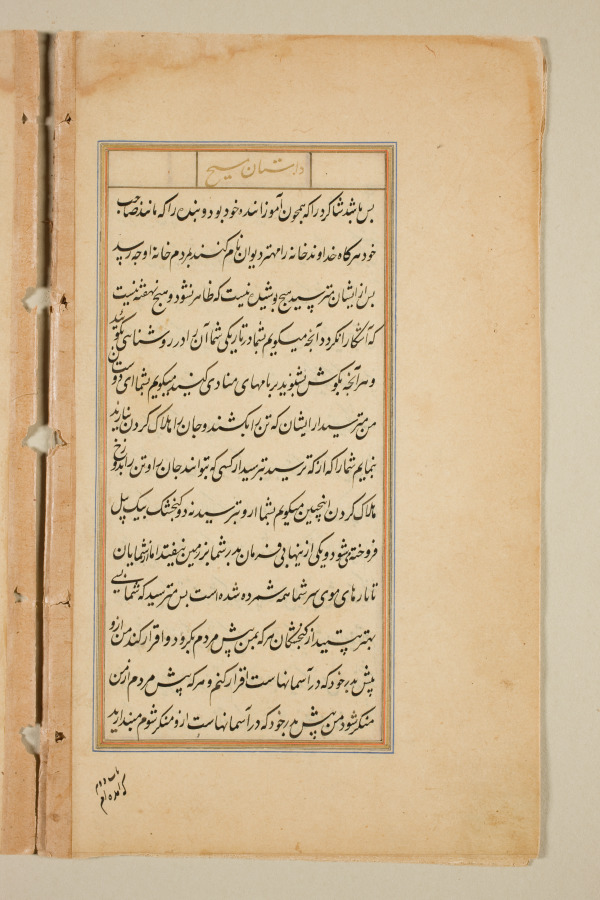 داستان مسیح
بس باشد شاکرد را که همچون آموزاننده خود بود و بنده را که مانند صاحب
خود هرکاه خداوند خانه را مهتر دیوان نام کنند بمردم خانه او چه رسد
بس از ایشان مترسید هیچ پوشیده نیست که ظاهر نشود و هیچ نهفته نیست
که آشکارا نکردد آنچه میکویم بشما در تاریکی شما آن را در روشناسی بکویید
و هر آنچه بکوش بشنوید بر بامهای منادی کنید میکویم بشما ای دوستان
من مترسید از ایشان که تن را بکشند و جان را هلاک کردن نیارند
نمایم شما را که از که ترسید بترسید از کسی که بتواند جان را و تن را بدوزخ
هلاک کردن اینچنین میکویم بشما ازو بترسید نه دو کنجشک بیک پل
فروخته میشود و یکی از ینها بی فرمان پدر شما بر زمین نیفتد اما از شمایان
تا تارهای موی سر شما همه شمرده شده است بس مترسید که شما بسی
بهتر هستید از کنجشکان هر که بمن پیش مردم بکرود و اقرار کند من ازو
پیش پدر خود که در آسمانهاست اقرار کنم و هر که پیش مردم از من
منکر شود من پیش پدر خود که در آسمانهاست ازو منکر شوم مپندارید
که آمده ام